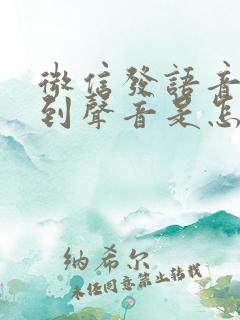 微信發語音
到聲音是怎
納希尔
未经同意禁止转载